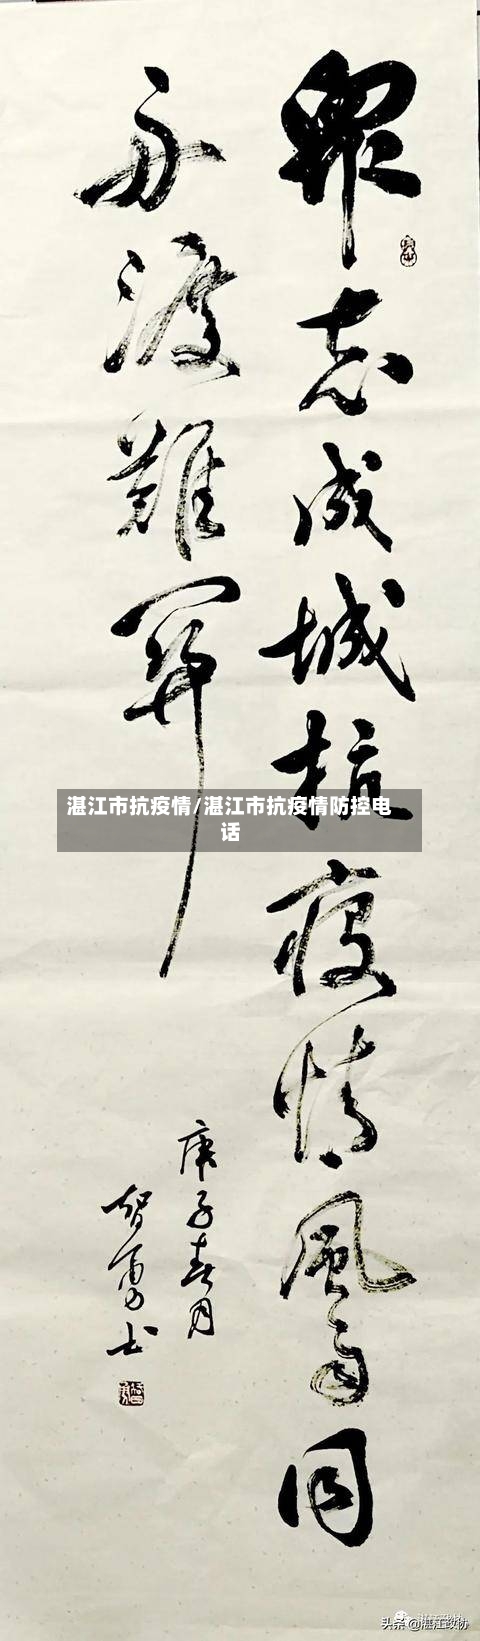 眾志成城抗疫情風雨同
舟渡難關
庚子春月
智勇书
湛江市抗疫情/湛江市抗疫情防控电
话
头条 @湛江政协